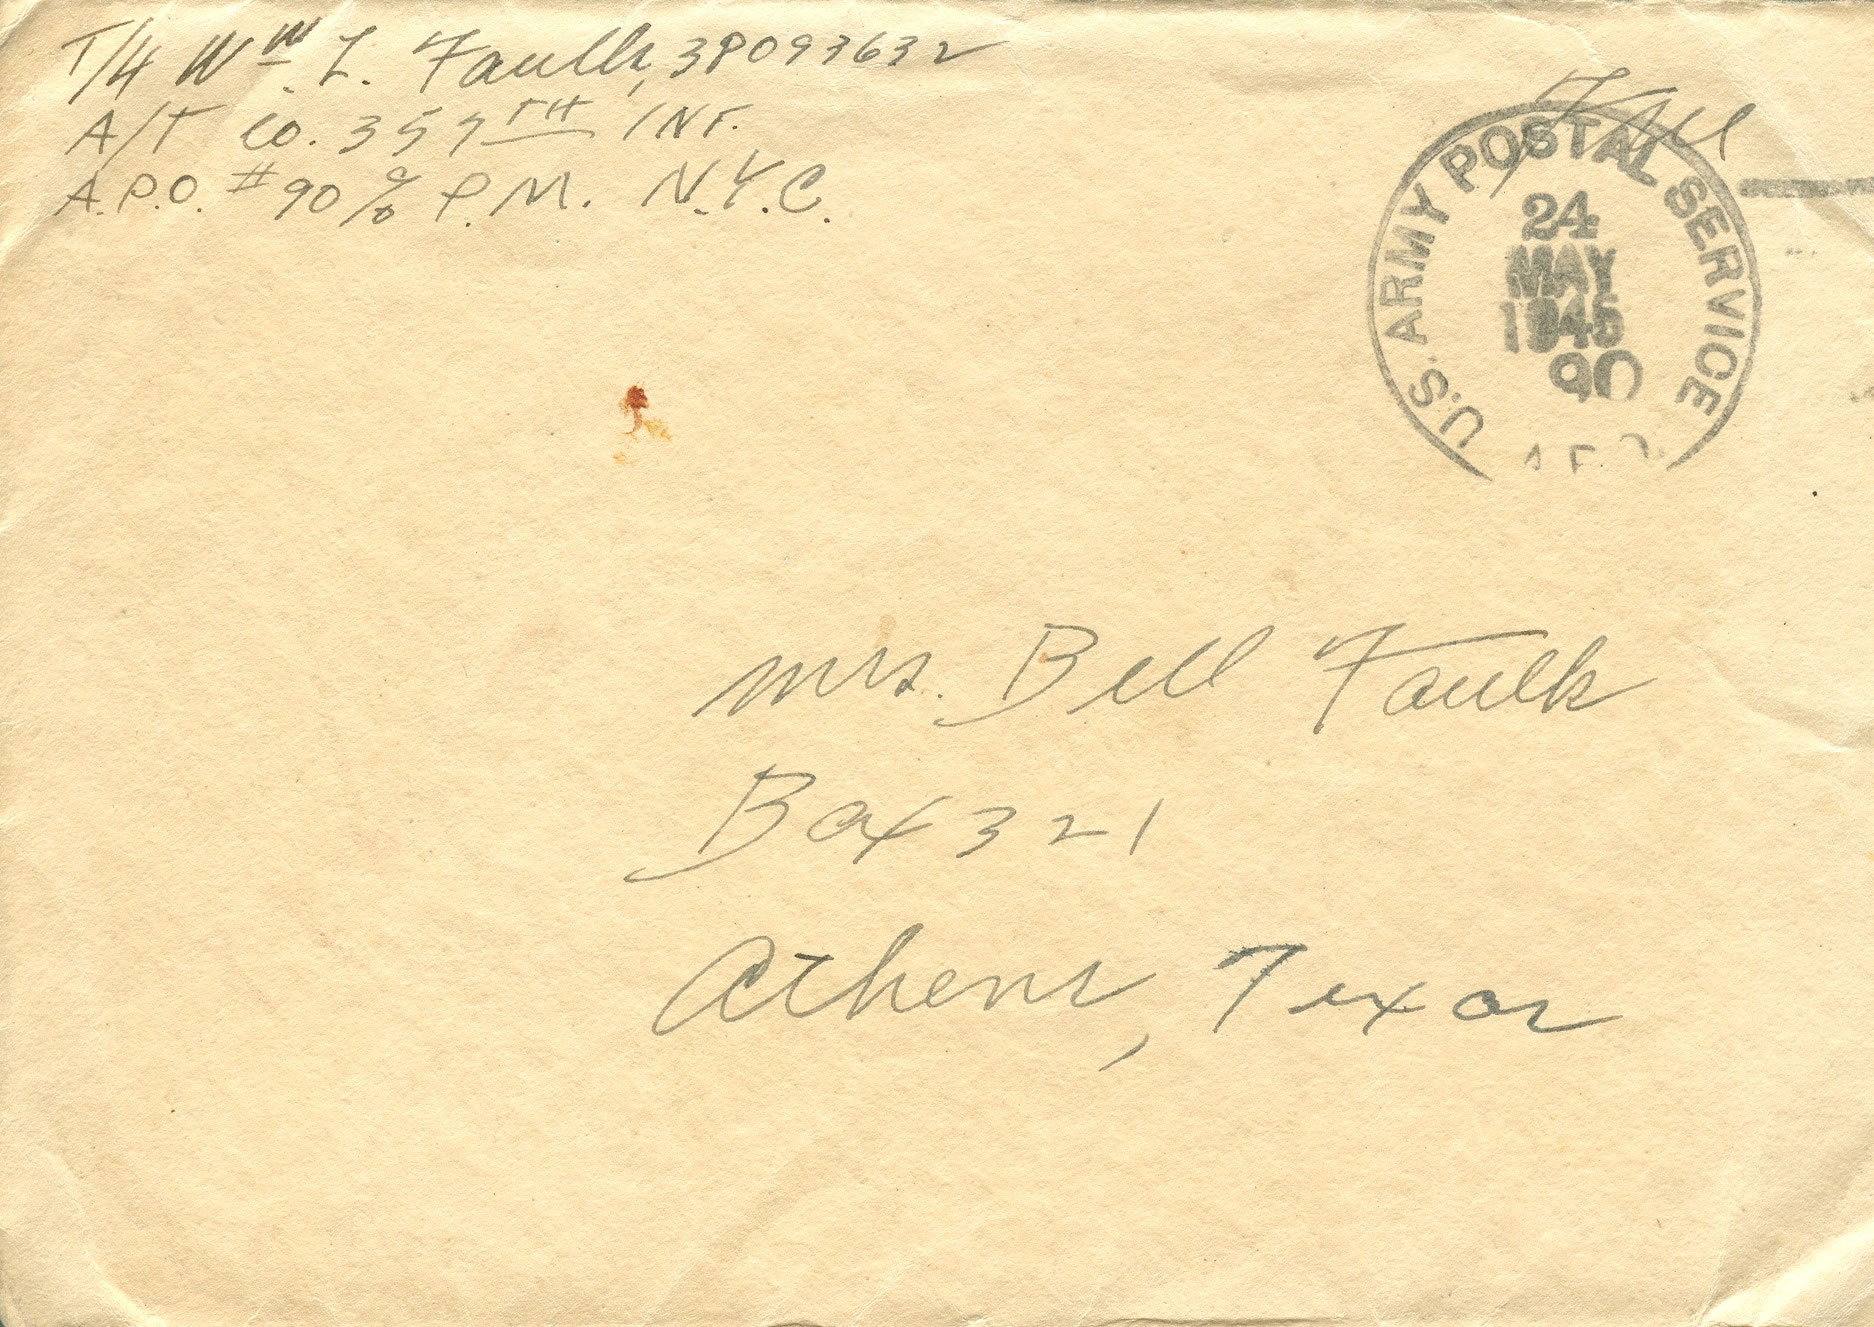 T/4 Wm. L. Faulk, 38093632
A/T Co. 357TH INF.
A.P.O. #90 % P.M. N.Y.C.
Free
U.S. ARMY POSTAL SERVICE
24
MAY
1945
90
Mrs. Bell Faulk
Box 321
Athens, Texas